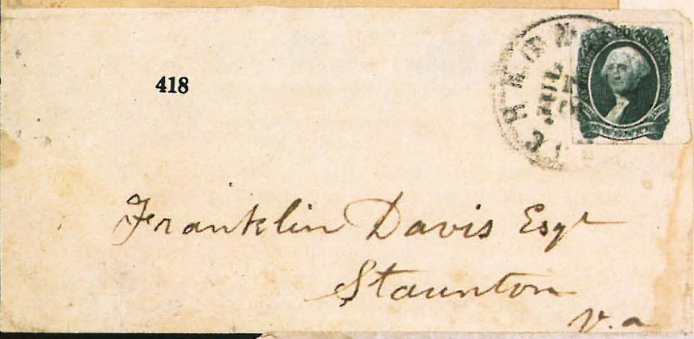 418
JUL
Franklin Davis Esqr
Staunton
Va